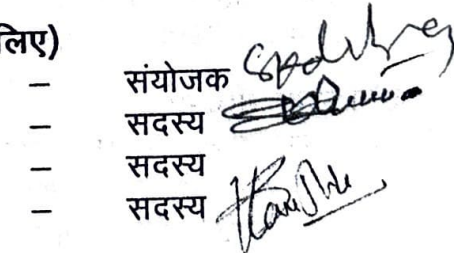 लिए)
– संयोजक
– सदस्य
– सदस्य
– सदस्य